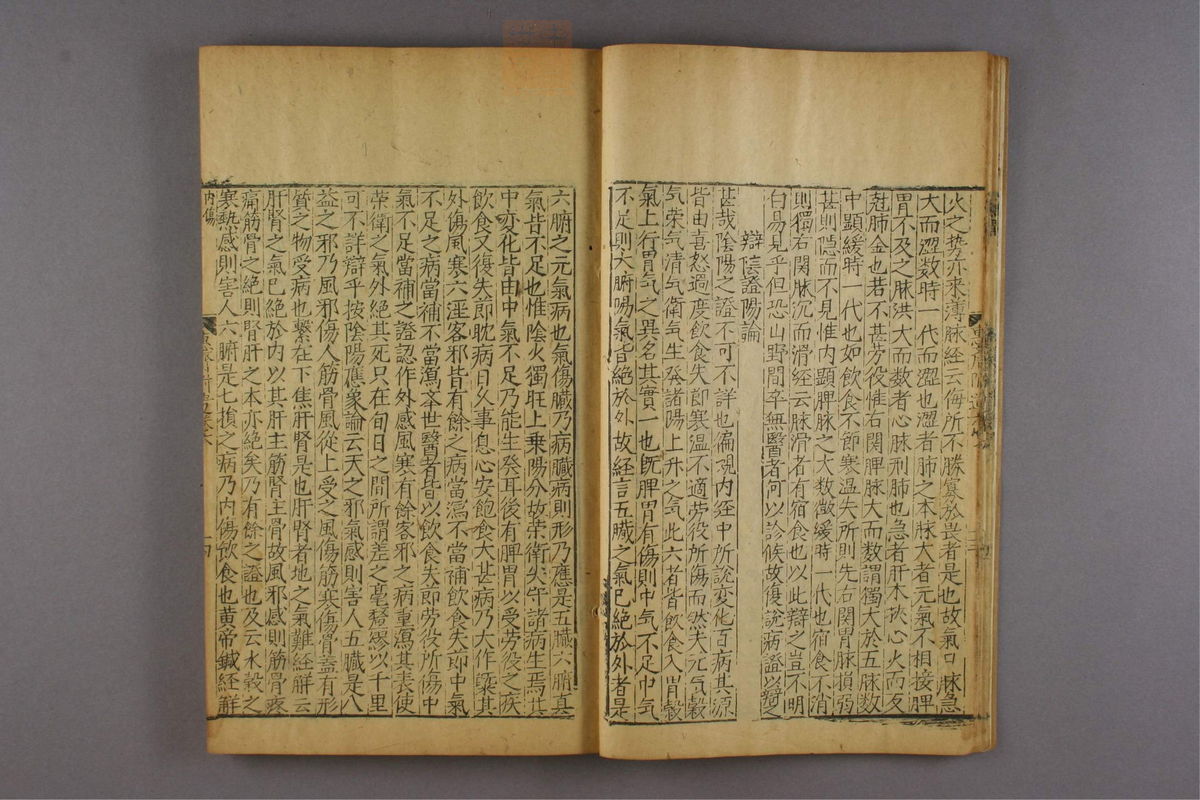 火之势亦来薄脉经云侮所不勝寡於畏者是也故氣口脉急
大而澀数時一代而澀也澀者肺之本脉大者元氣不相接脾
胃不及之脉洪大而数者心脉刑肺也急者肝木挾心火而反
尅肺金也若不甚劳役惟右関脾脉大而数謂獨大於五脉数
中顕緩時一代也如飲食不節寒温失所則先右関胃脉損弱
甚則隠而不見惟内顕脾脉之大数微緩時一代也宿食不消
則獨右関脉沉而滑经云脉滑者有宿食也以此辯之豈不明
白易見乎但恐山野間卒無醫者何以診候故復說病證以辯之
辯陰證陽論
甚哉陰陽之證不可不詳也徧觀内经中所說変化百病其源
皆由喜怒過度飲食失節寒温不適劳役所傷而然夫元气穀
气荣气清气衛气生發諸陽上升之气此六者皆飲食入胃穀
氣上行胃气之異名其實一也旣脾胃有傷則中气不足中气
不足則六腑陽氣皆絶於外故経言五臟之氣已絶於外者是
六腑之元氣病也氣傷臟乃病臟病則形乃應是五臟六腑真
氣皆不足也惟陰火獨旺上乗陽分故荣衛失守諸病生焉其
中変化皆由中氣不足乃能生發耳後有脾胃以受劳役之疾
飲食又復失節耽病日乆事息心安飽食大甚病乃大作槩其
外傷風寒六淫客邪皆有餘之病當瀉不當補飲食失節中氣
不足之病當補不當瀉本世醫者皆以飲食失節劳役所傷中
氣不足當補之證認作外感風寒有餘客邪之病重瀉其表使
荣衛之氣外絶其死只在旬日之間所謂差之毫釐繆以千里
可不詳辯乎按陰陽應象論云天之邪氣感則害人五臟是八
益之邪乃風邪傷人筋骨風從上受之風傷筋寒傷骨盖有形
質之物受病也繫在下焦肝腎是也肝腎者地之氣難経觧云
肝腎之氣已絶於内以其肝主筋腎主骨故風邪感則筋骨疼
痛筋骨之絶則腎肝之本亦絶矣乃有餘之證也及云水穀之
寒熱感則害人六腑是七損之病乃内傷飲食也黄帝鍼経觧
内傷